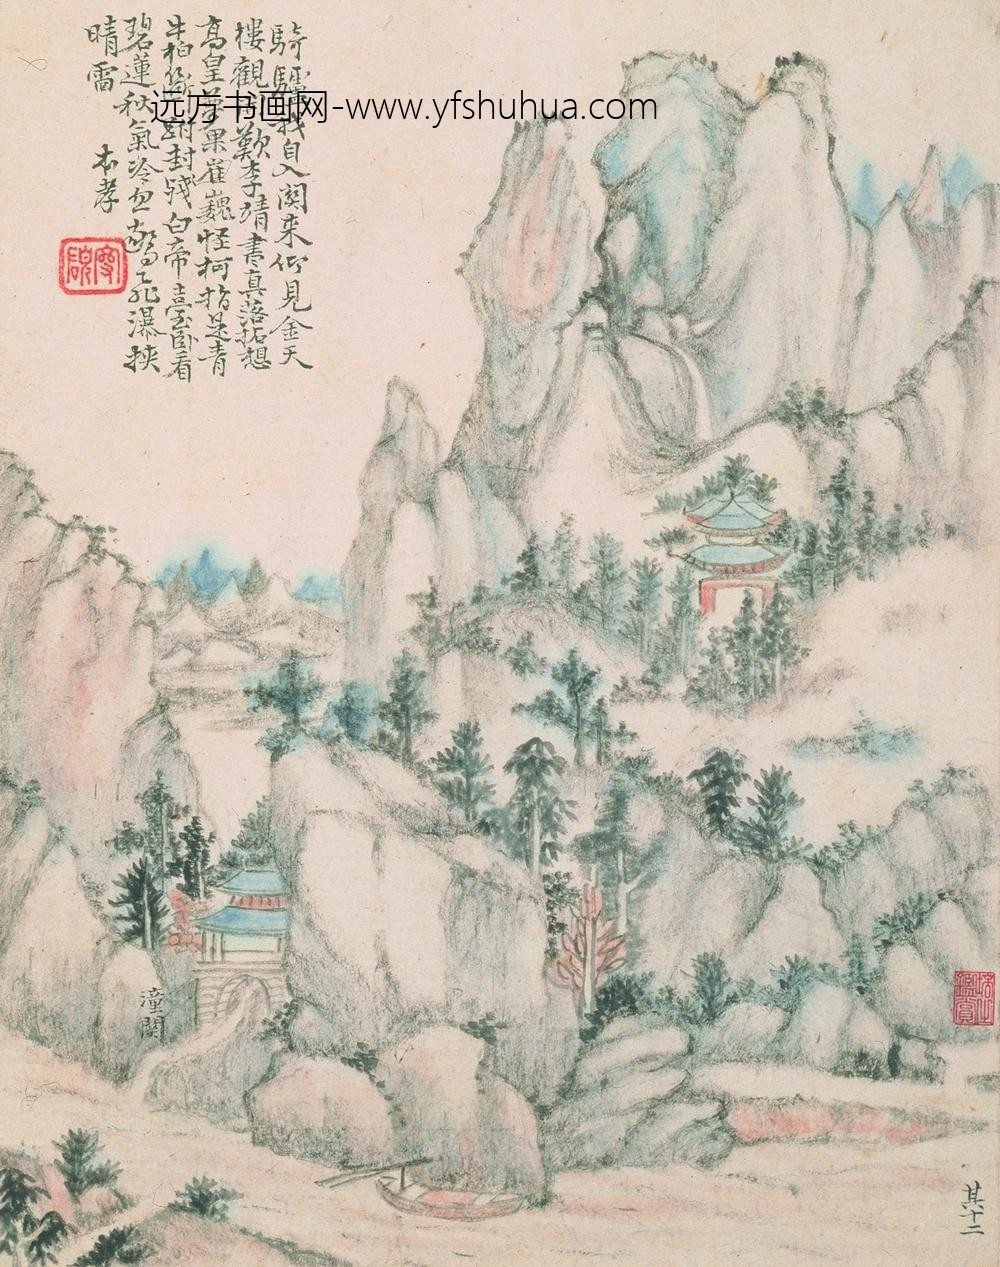 騎驢我自入関来仰見金天
樓觀歎李靖書真落拓想
高皇夢果崔巍怪柯指是青
牛柏封殘白帝臺卧看
碧蓮秋氣冷忽驚飛瀑挾
晴雷
本孝
远方书画网-www.yfshuhua.com
潼関
其十二